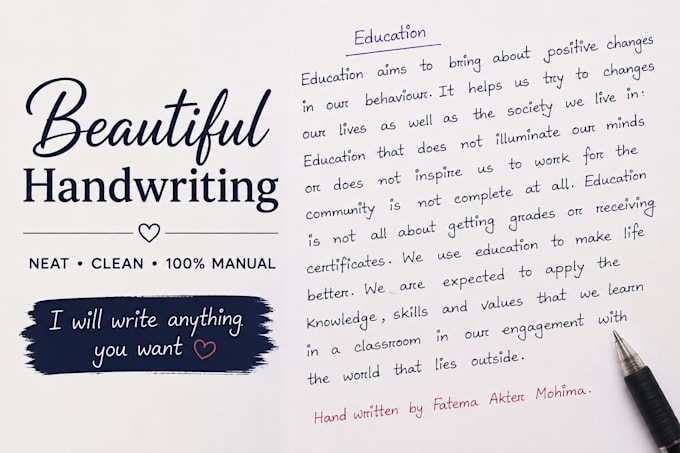 Beautiful
Handwriting
NEAT • CLEAN • 100% MANUAL
I will write anything
you want
Education
Education aims to bring about positive changes
in our behaviour. It helps us try to changes
our lives as well as the society we live in.
Education that does not illuminate our minds
or does not inspire us to work for the
community is not complete at all. Education
is not all about getting grades or receiving
certificates. We use education to make life
better. We are expected to apply the
knowledge, skills and values that we learn
in a classroom in our engagement with
the world that lies outside.
Hand written by Fatema Akter Mohima.